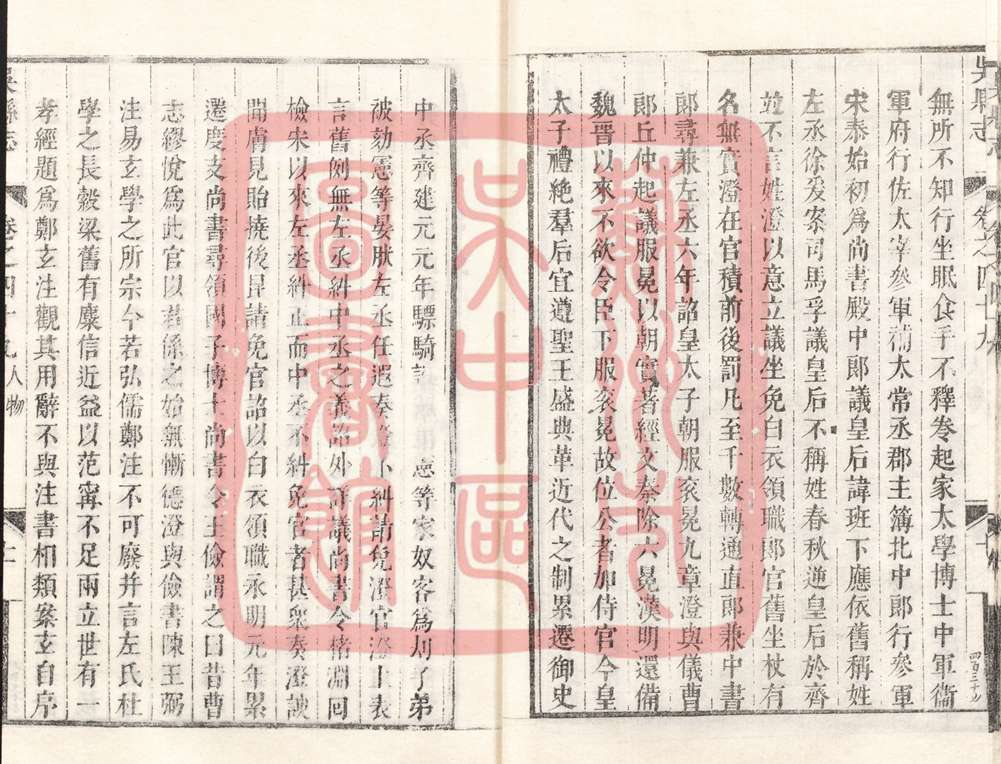 無所不知行坐眠食手不釋卷起家太學博士中軍衞
軍府行佐太宰參軍補太常丞郡主簿北中郎行參軍
宋泰始初爲尚書殿中郎議皇后諱班下應依舊稱姓
左丞徐爰案司馬孚議皇后不稱姓春秋逆皇后於齊
並不言姓澄以意立議坐免白衣領職郎官舊坐杖有
名無實澄在官積前後罰凡至千數轉通直郎兼中書
郎尋兼左丞六年詔皇太子朝服衮冕九章澄與儀曹
郎丘仲起議服冕以朝實著經文秦除六冕漢明還備
魏晉以來不欲令臣下服衮冕故位公者加侍官今皇
太子禮絶羣后宜遵聖王盛典革近代之制累遷御史
中丞齊建元元年驃騎 憲等家奴客爲刦子弟
被劾憲等晏然左丞任遐奏澄不糾請免澄官澄上表
言舊例無左丞糾中丞之義詔外詳議尚書令褚淵囘
檢宋以來左丞糾正而中丞不糾免官者甚衆奏澄謏
聞膚見貽撓後昆請免官詔以白衣領職永明元年累
遷度支尚書尋領國子博士尚書令王儉謂之曰昔曹
志繆悅爲此官以君係之始無慚德澄與儉書陳王弼
注易玄學之所宗今若弘儒鄭注不可廢并言左氏杜
學之長穀梁舊有麋信近益以范甯不足兩立世有一
孝經題爲鄭玄注觀其用辭不與注書相類案玄自序
吳縣志
卷之四十九 人物
二
蘇州市
吳中區
圖書館